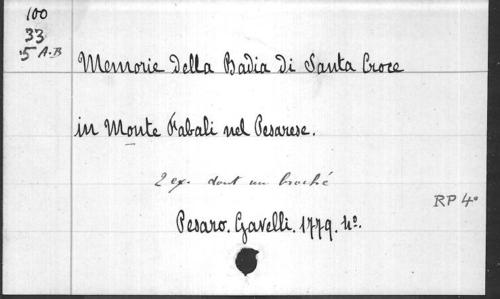 100
33
5 A-B
Memorie della Badia di Santa Croce
in Monte Fabali nel Pesarese.
2 ex. dont un broché
RP 4°
Pesaro. Gavelli. 1779. 4°.